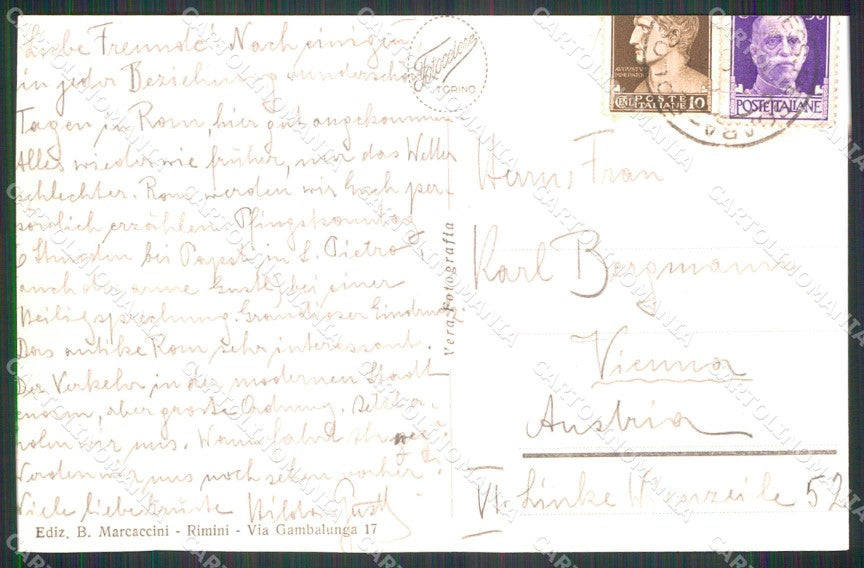 Liebe Freunde! Nach einigen
in jeder Beziehung wunderschönen
Tagen in Rom, hier gut angekommen
Alles wieder wie früher, nur das Wetter
schlechter. Rom werden wir Euch per-
sönlich erzählen. Pfingstsonntag
6 Stunden bei Papst, in S. Pietro
auch die arme Gustl, bei einer
Heiligsprechung. Grandioser Eindruck.
Das antike Rom sehr interessant.
Der Verkehr in der modernen Stadt
enorm, aber große Ordnung. Jetzt
holen wir uns. Wann fahrt Ihr
Werden wir uns noch sehen vorher?
Viele liebe Grüße Hilda Gustl
Ediz. B. Marcaccini - Rimini - Via Gambalunga 17
Vera Fotografia
Fotocelere
TORINO
POSTE
ITALIANE
CENT. 10
50
POSTE ITALIANE
Herrn, Frau
Karl Bergmann
Vienna
Austria
VI. Linke Wienzeile 52
CARTOLINOMANIA